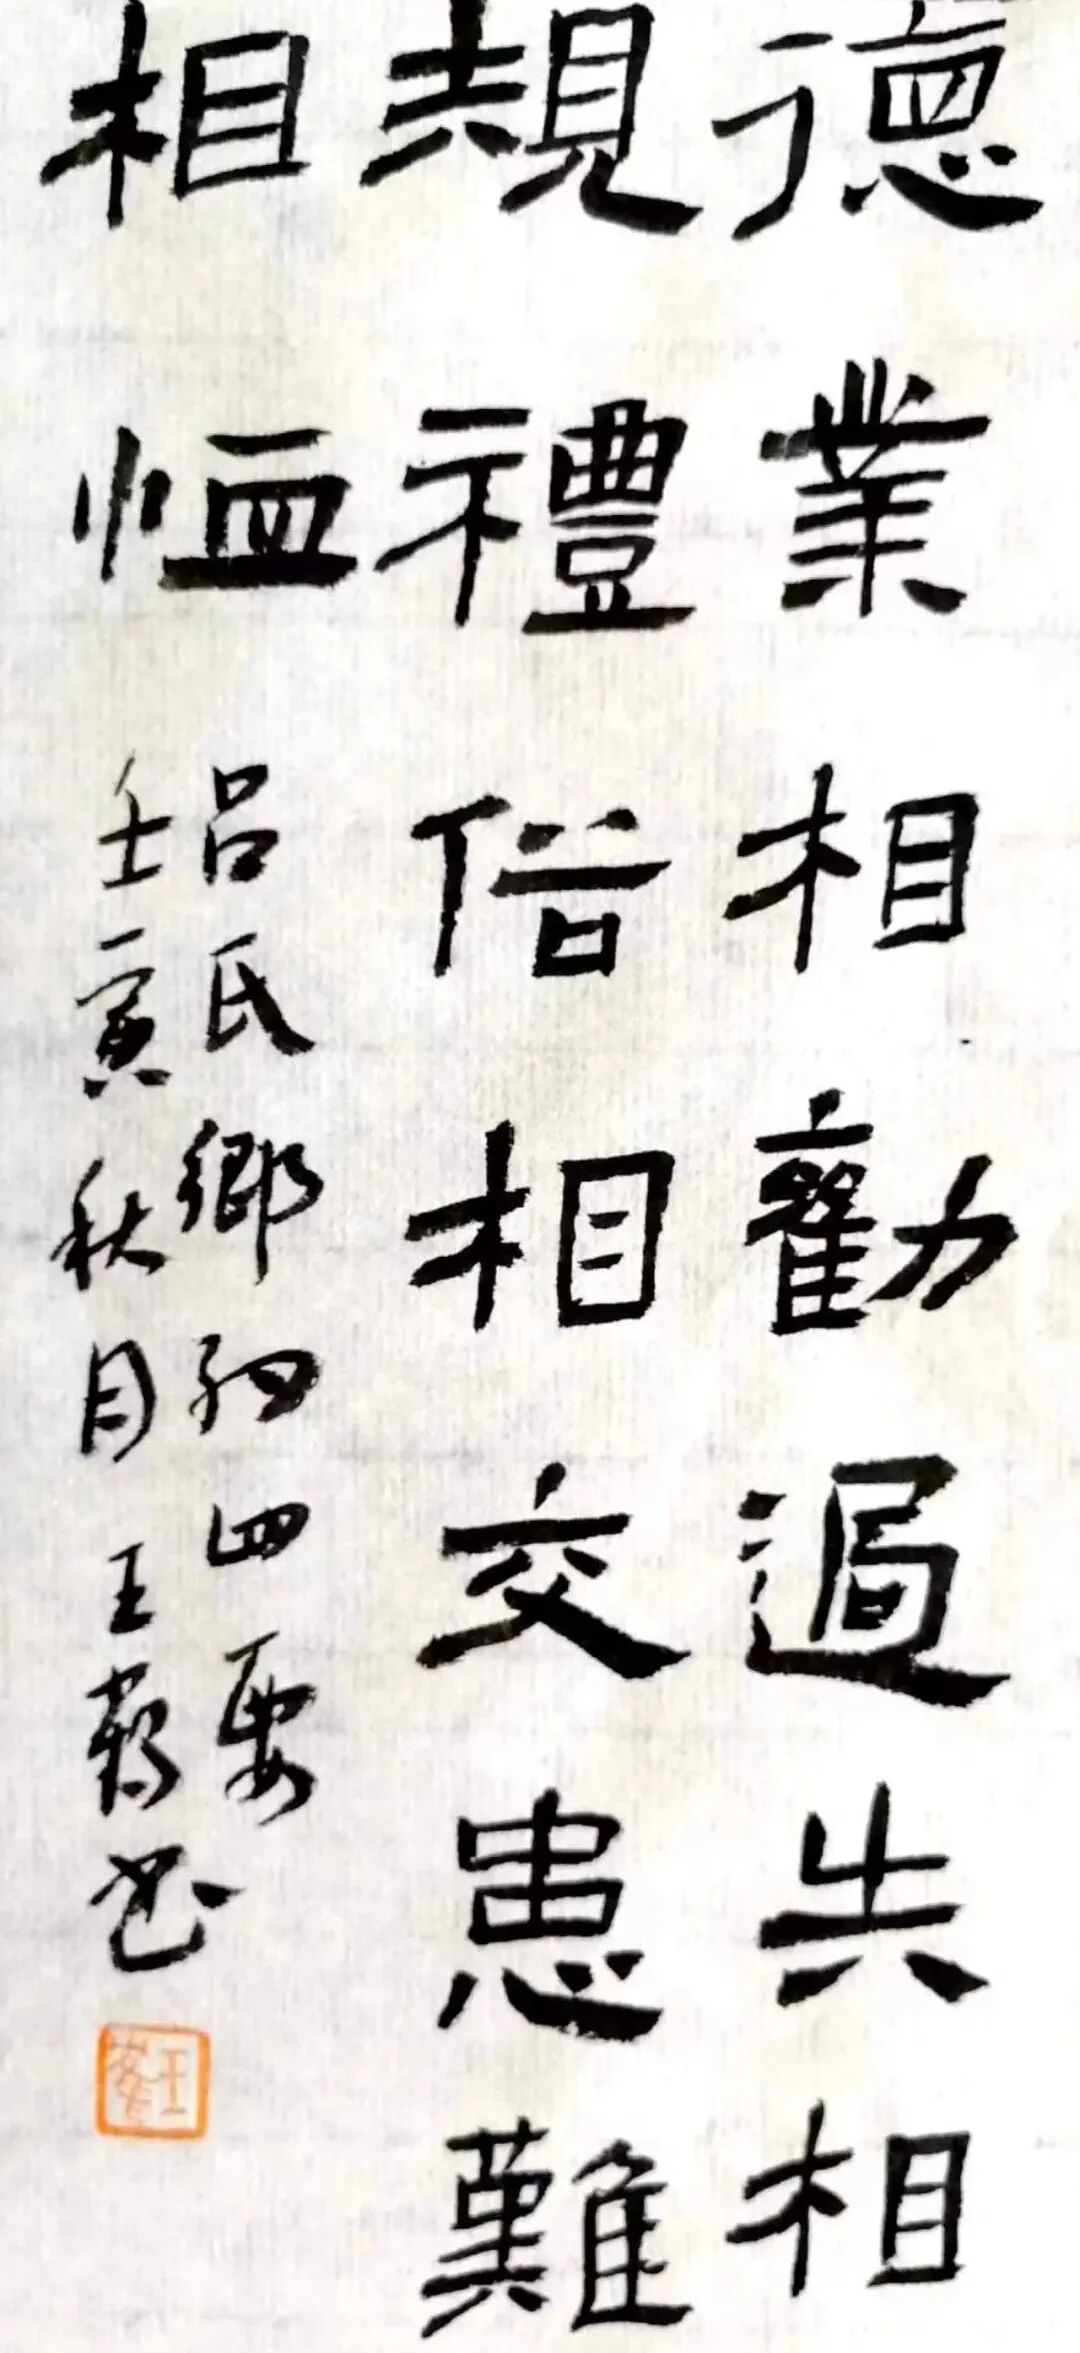 德業相勸過失相
規禮俗相交患難
相恤
呂氏鄉約四要
壬寅秋月王書
王